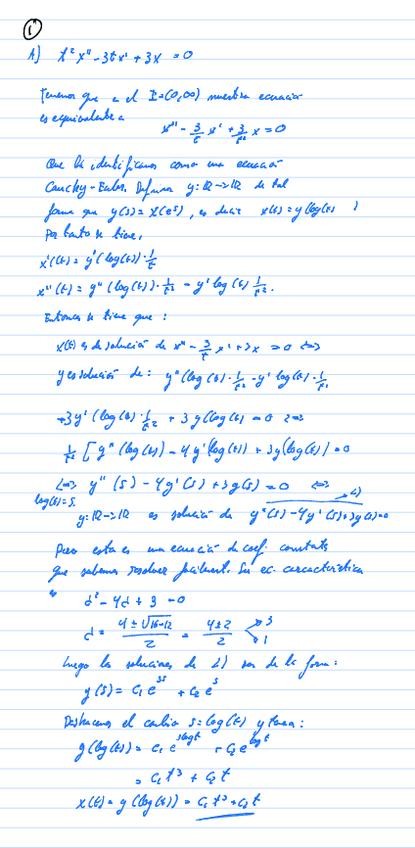 1
A) t²x'' - 3tx' + 3x = 0
Tenemos que en el I=(0,∞) nuestra ecuación
es equivalente a
x'' - 3/t x' + 3/t² x = 0
Que la identificamos como una ecuación
Cauchy-Euler. Definimos y: ℝ→ℝ de tal
forma que y(s) = x(e^s), es decir x(t) = y(log(t))
Por tanto se tiene,
x'(t) = y'(log(t))·1/t
x''(t) = y''(log(t))·1/t² - y' log(t) 1/t².
Entonces se tiene que:
x(t) es de solución de x'' - 3/t x' + 3x = 0 <=>
y es solución de: y''(log(t)·1/t² - y' log(t)·1/t²
+3y'(log(t)·1/t² + 3y(log(t) = 0 <=>
1/t² [y''(log(t) - 4y'(log(t)) + 3y(log(t)] = 0
<=> y''(s) - 4y'(s) + 3y(s) = 0 <=>
log(t)=s.
y: ℝ→ℝ es solución de y''(s) - 4y'(s) + 3y(s) = 0
Pero esta es una ecuación de coef. constante
que sabemos resolver facilment. Su ec. característica
es
d² - 4d + 3 = 0
d = 4±√16-12 / 2 = 4±2 / 2 3 1
Luego las soluciones de son de la forma:
y(s) = c₁e^3s + c₂e^s
Deshacemos el cambio s = log(t) y
y(log(t)) = c₁e^3logt + c₂e^logt
= c₁t³ + c₂t
x(t) = y(log(t)) = c₁t³ + c₂t